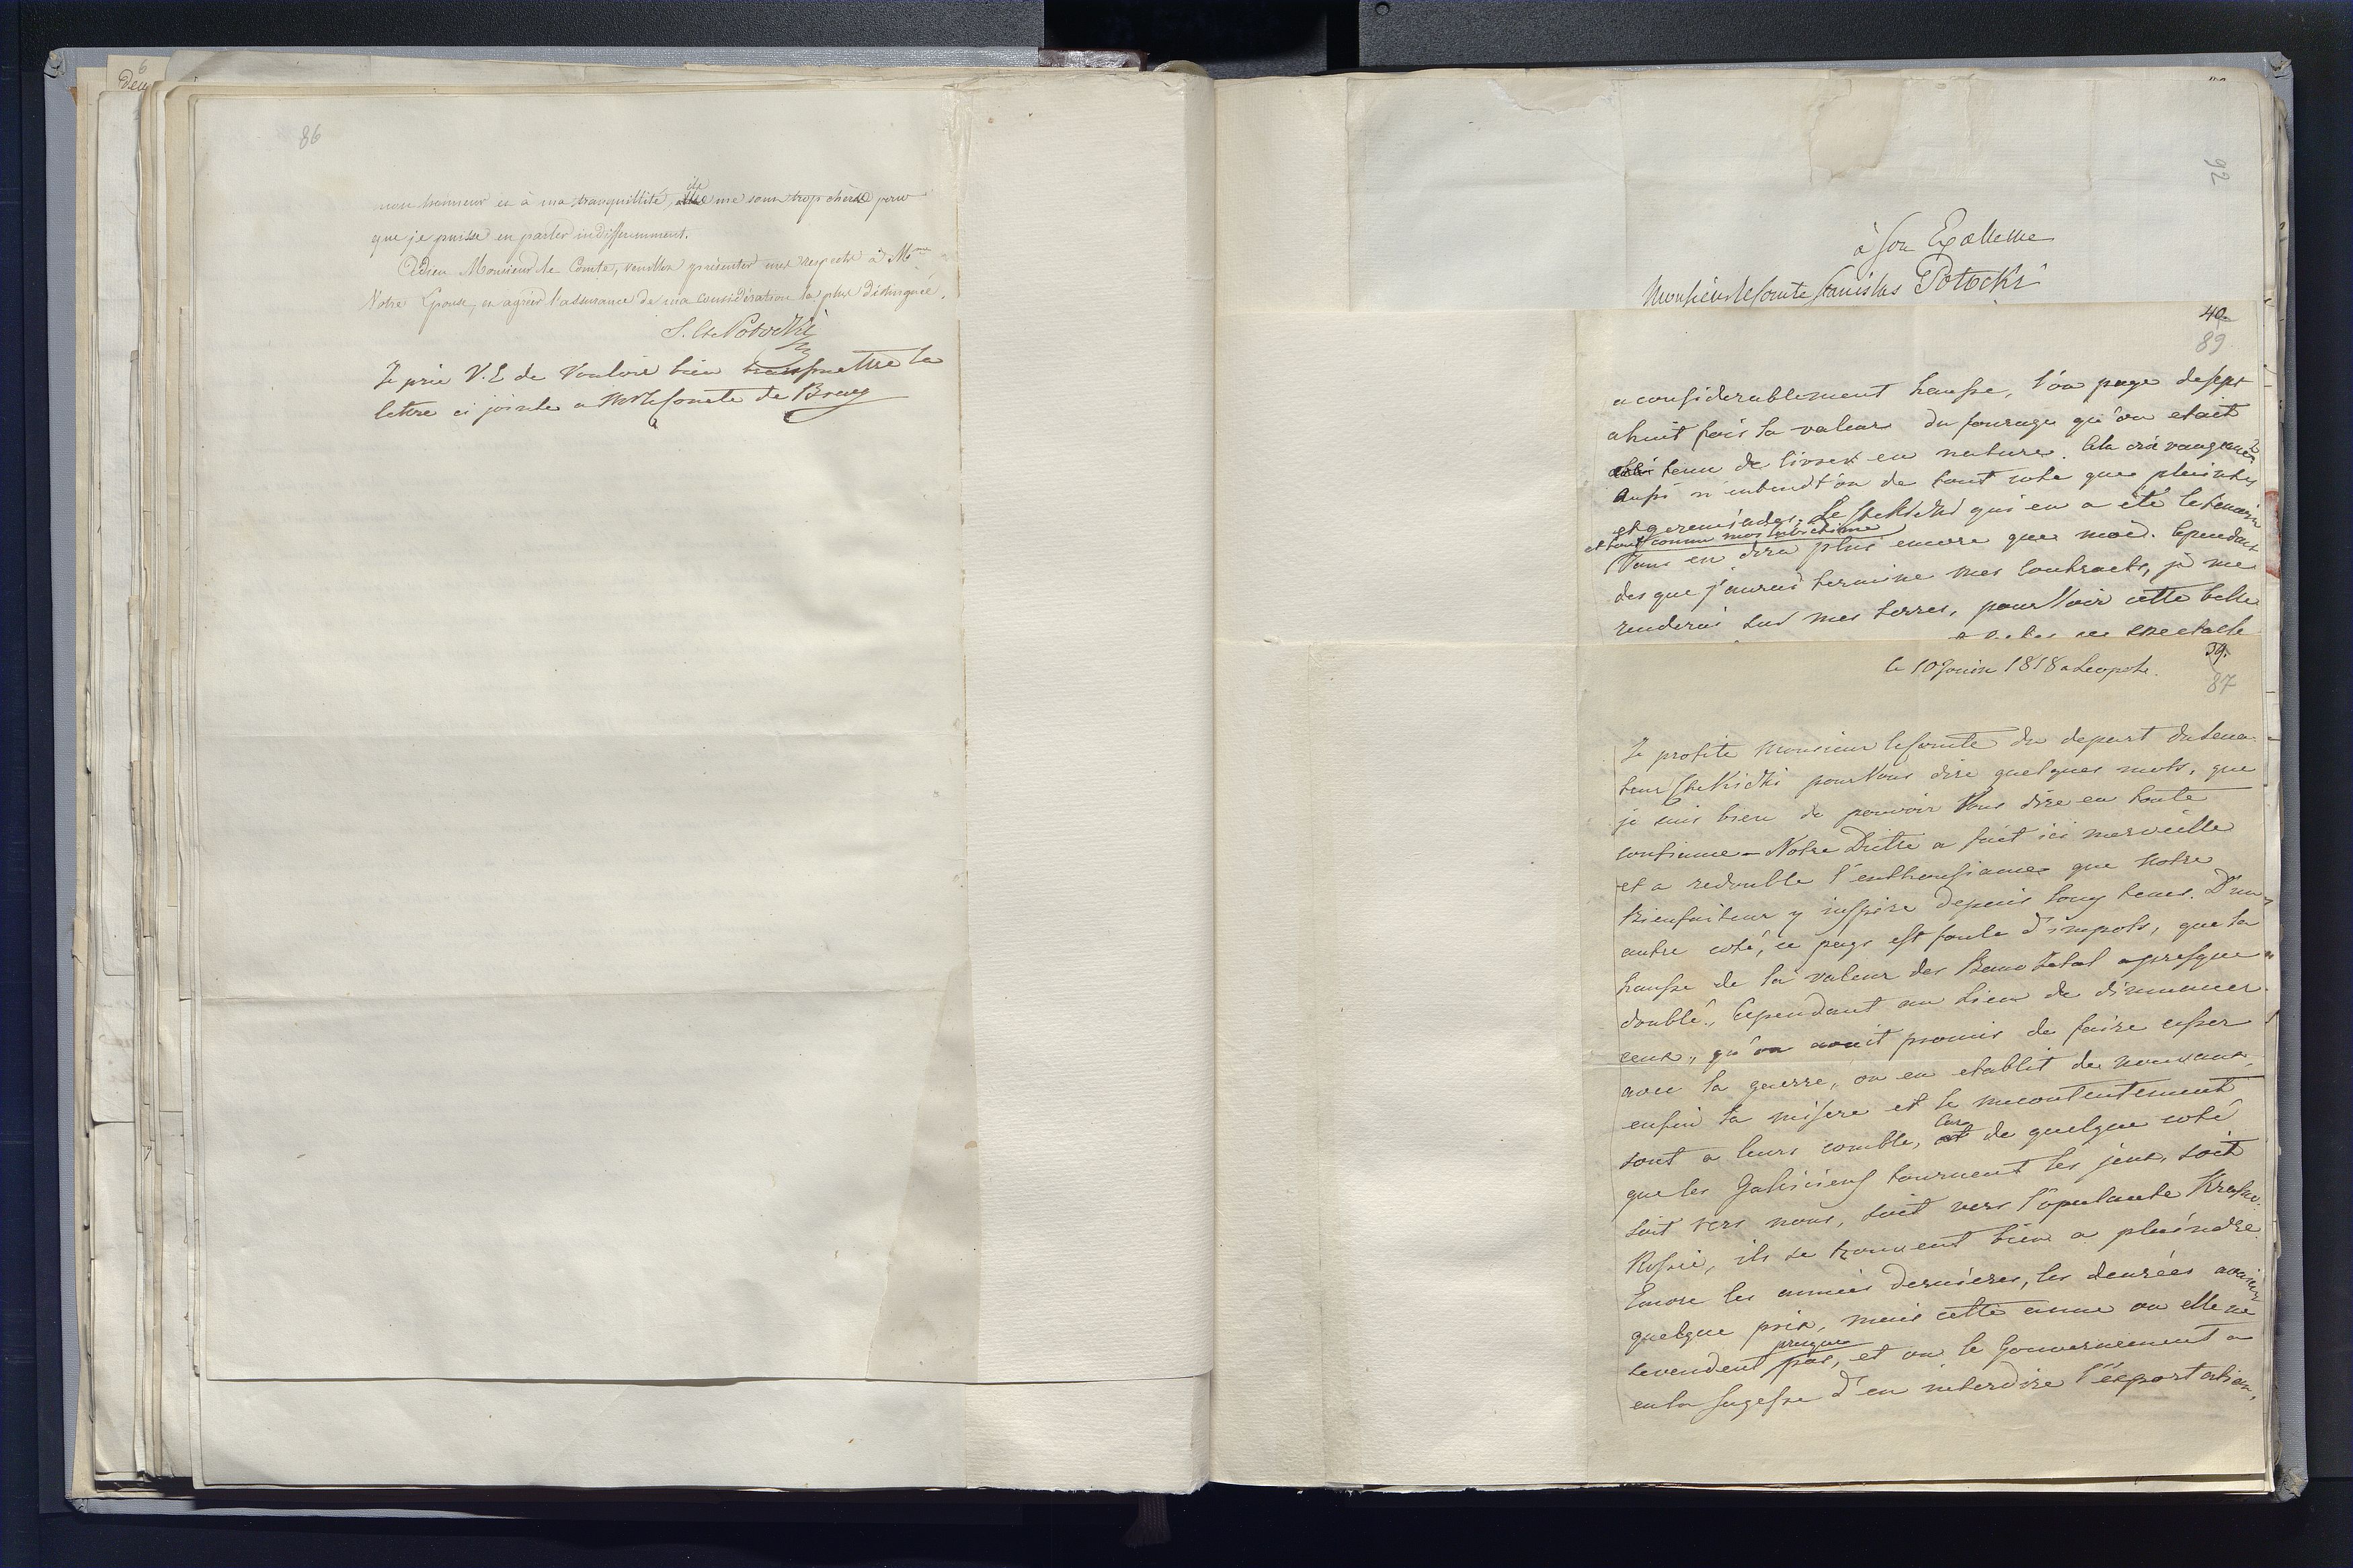 86
mon honneur et à ma tranquillité, ils me sont trop chers pour
que je puisse en parler indifferemment.
Adieu Monsieur le Comte, veuillez présenter mes respects à Mme
Votre Epouse, et agréer l'assurance de ma considération la plus distinguée.
S. Cte Potocki
Je prie V. E de Vouloir bien transmettre la
lettre ci jointe a Mr le Comte de Bray
92
à Son Excellence
Monsieur le Comte Stanislas Potocki
40
89
a considerablement hausse, l'on paye de sept
a huit fois la valeur du fourage qu'on etait
tenu de livrer en nature. Cela crie vengeance
Aussi n'entend t'on de tout cote que plaintes
et geremiades. Le qui en a été le temoin
et tout comme moi la victime
Vous en dira plus encore que moi. Cependant
des que j'aurai termine mes contracts, je me
renderai sur mes terres, pour Voir cette belle
spectacle
39.
87
le 10 Jouin 1818 a Leopole.
Je profite Monsieur le Comte du depart du Sena-
teur pour Vous dire quelques mots, que
je suis bien de pouvoir Vous dire en toute
confiance – Notre Diette a fait ici merveille
et a redouble l'enthousiasme que Notre
Bienfaiteur y inspire depuis long tems. D'un
autre coté, ce pays est foule d'impots, que la
hausse de la valeur des a presque
doublé, Cependant au Lieu de diminuer
ceux, qu'on avait promis de faire cesser
avec la guerre, on en etablit de nouveaux,
enfin la misere et le mecontentement
sont a leurs comble, Car de quelque coté
que les Galiciens tournent les jeux, soit
soit vers nous, soit vers l'opulante Krasno-
Rossie, ils se trouvent bien a plaindre.
Encore les années dernieres, les denrées avaient
quelque prix, mais cette anne ou elle ne
se vendent presque pas, et ou le Gouvernement a
eu la sagesse d'en interdire l'exportation,